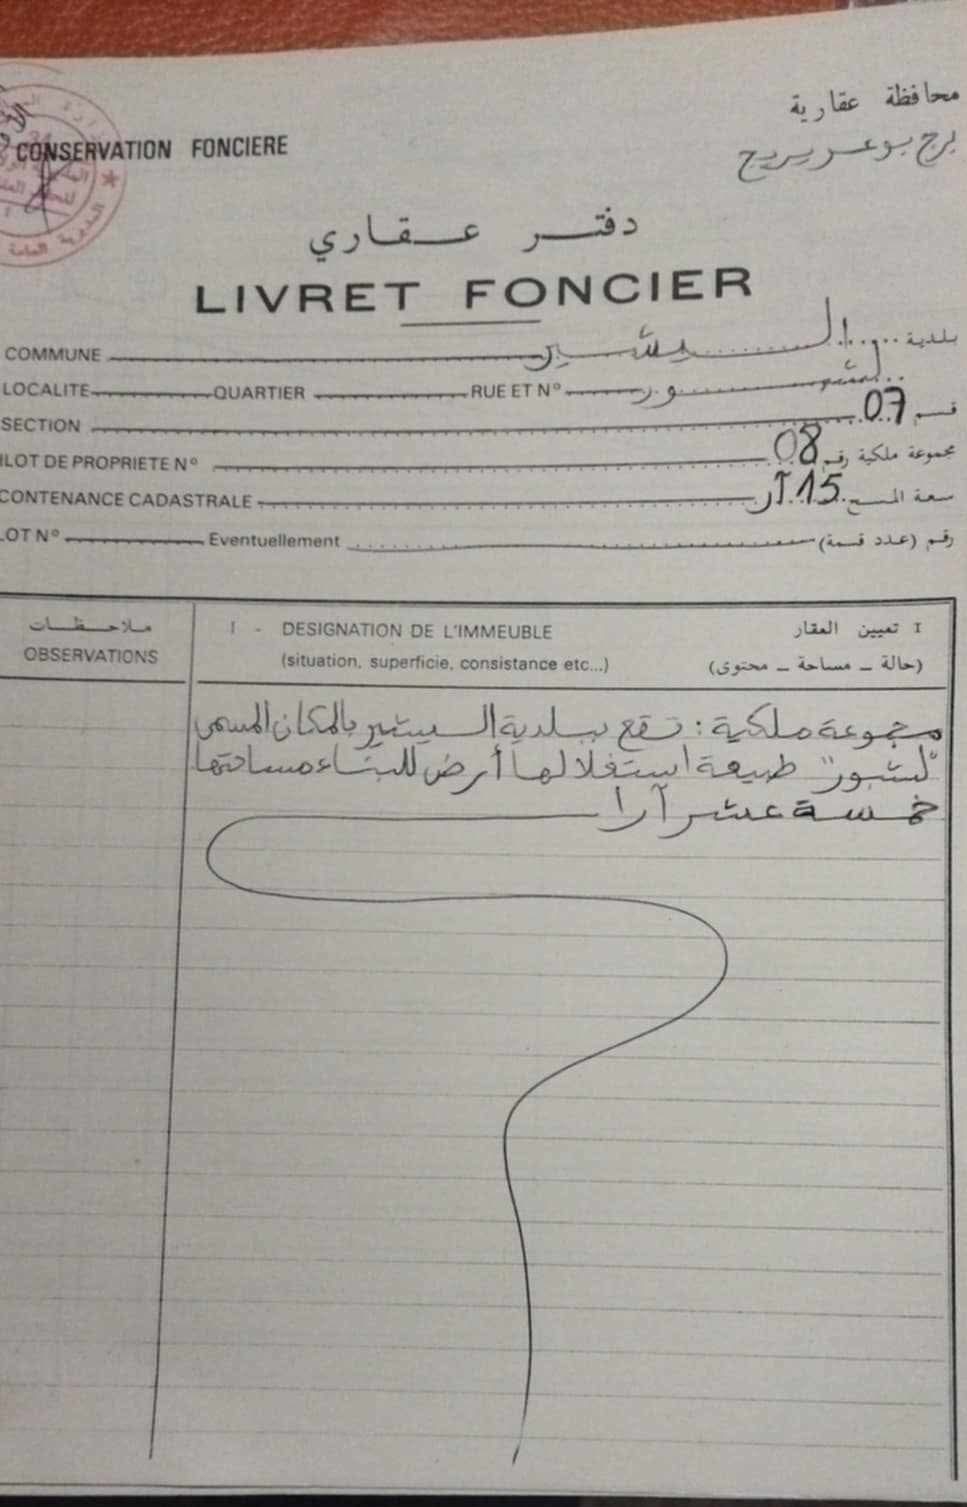 محافظة عقارية
برج بوعريريج
CONSERVATION FONCIERE
دفتر عقاري
LIVRET FONCIER
COMMUNE اليشير بلدية
LOCALITE QUARTIER RUE ET N°
SECTION 07 قسم
ILOT DE PROPRIETE N° 08 مجموعة ملكية رقم
CONTENANCE CADASTRALE 15 آر سعة المسح
LOT N° Eventuellement رقم (عدد قسمة)
ملاحظات
OBSERVATIONS
I - DESIGNATION DE L'IMMEUBLE I تعيين العقار
(situation, superficie, consistance etc...) (حالة - مساحة - محتوى)
مجموعة ملكية : تقع ببلدية اليشير بالمكان المسمى
طبيعة استغلالها أرض للبناء مساحتها
خمسة عشر آرا